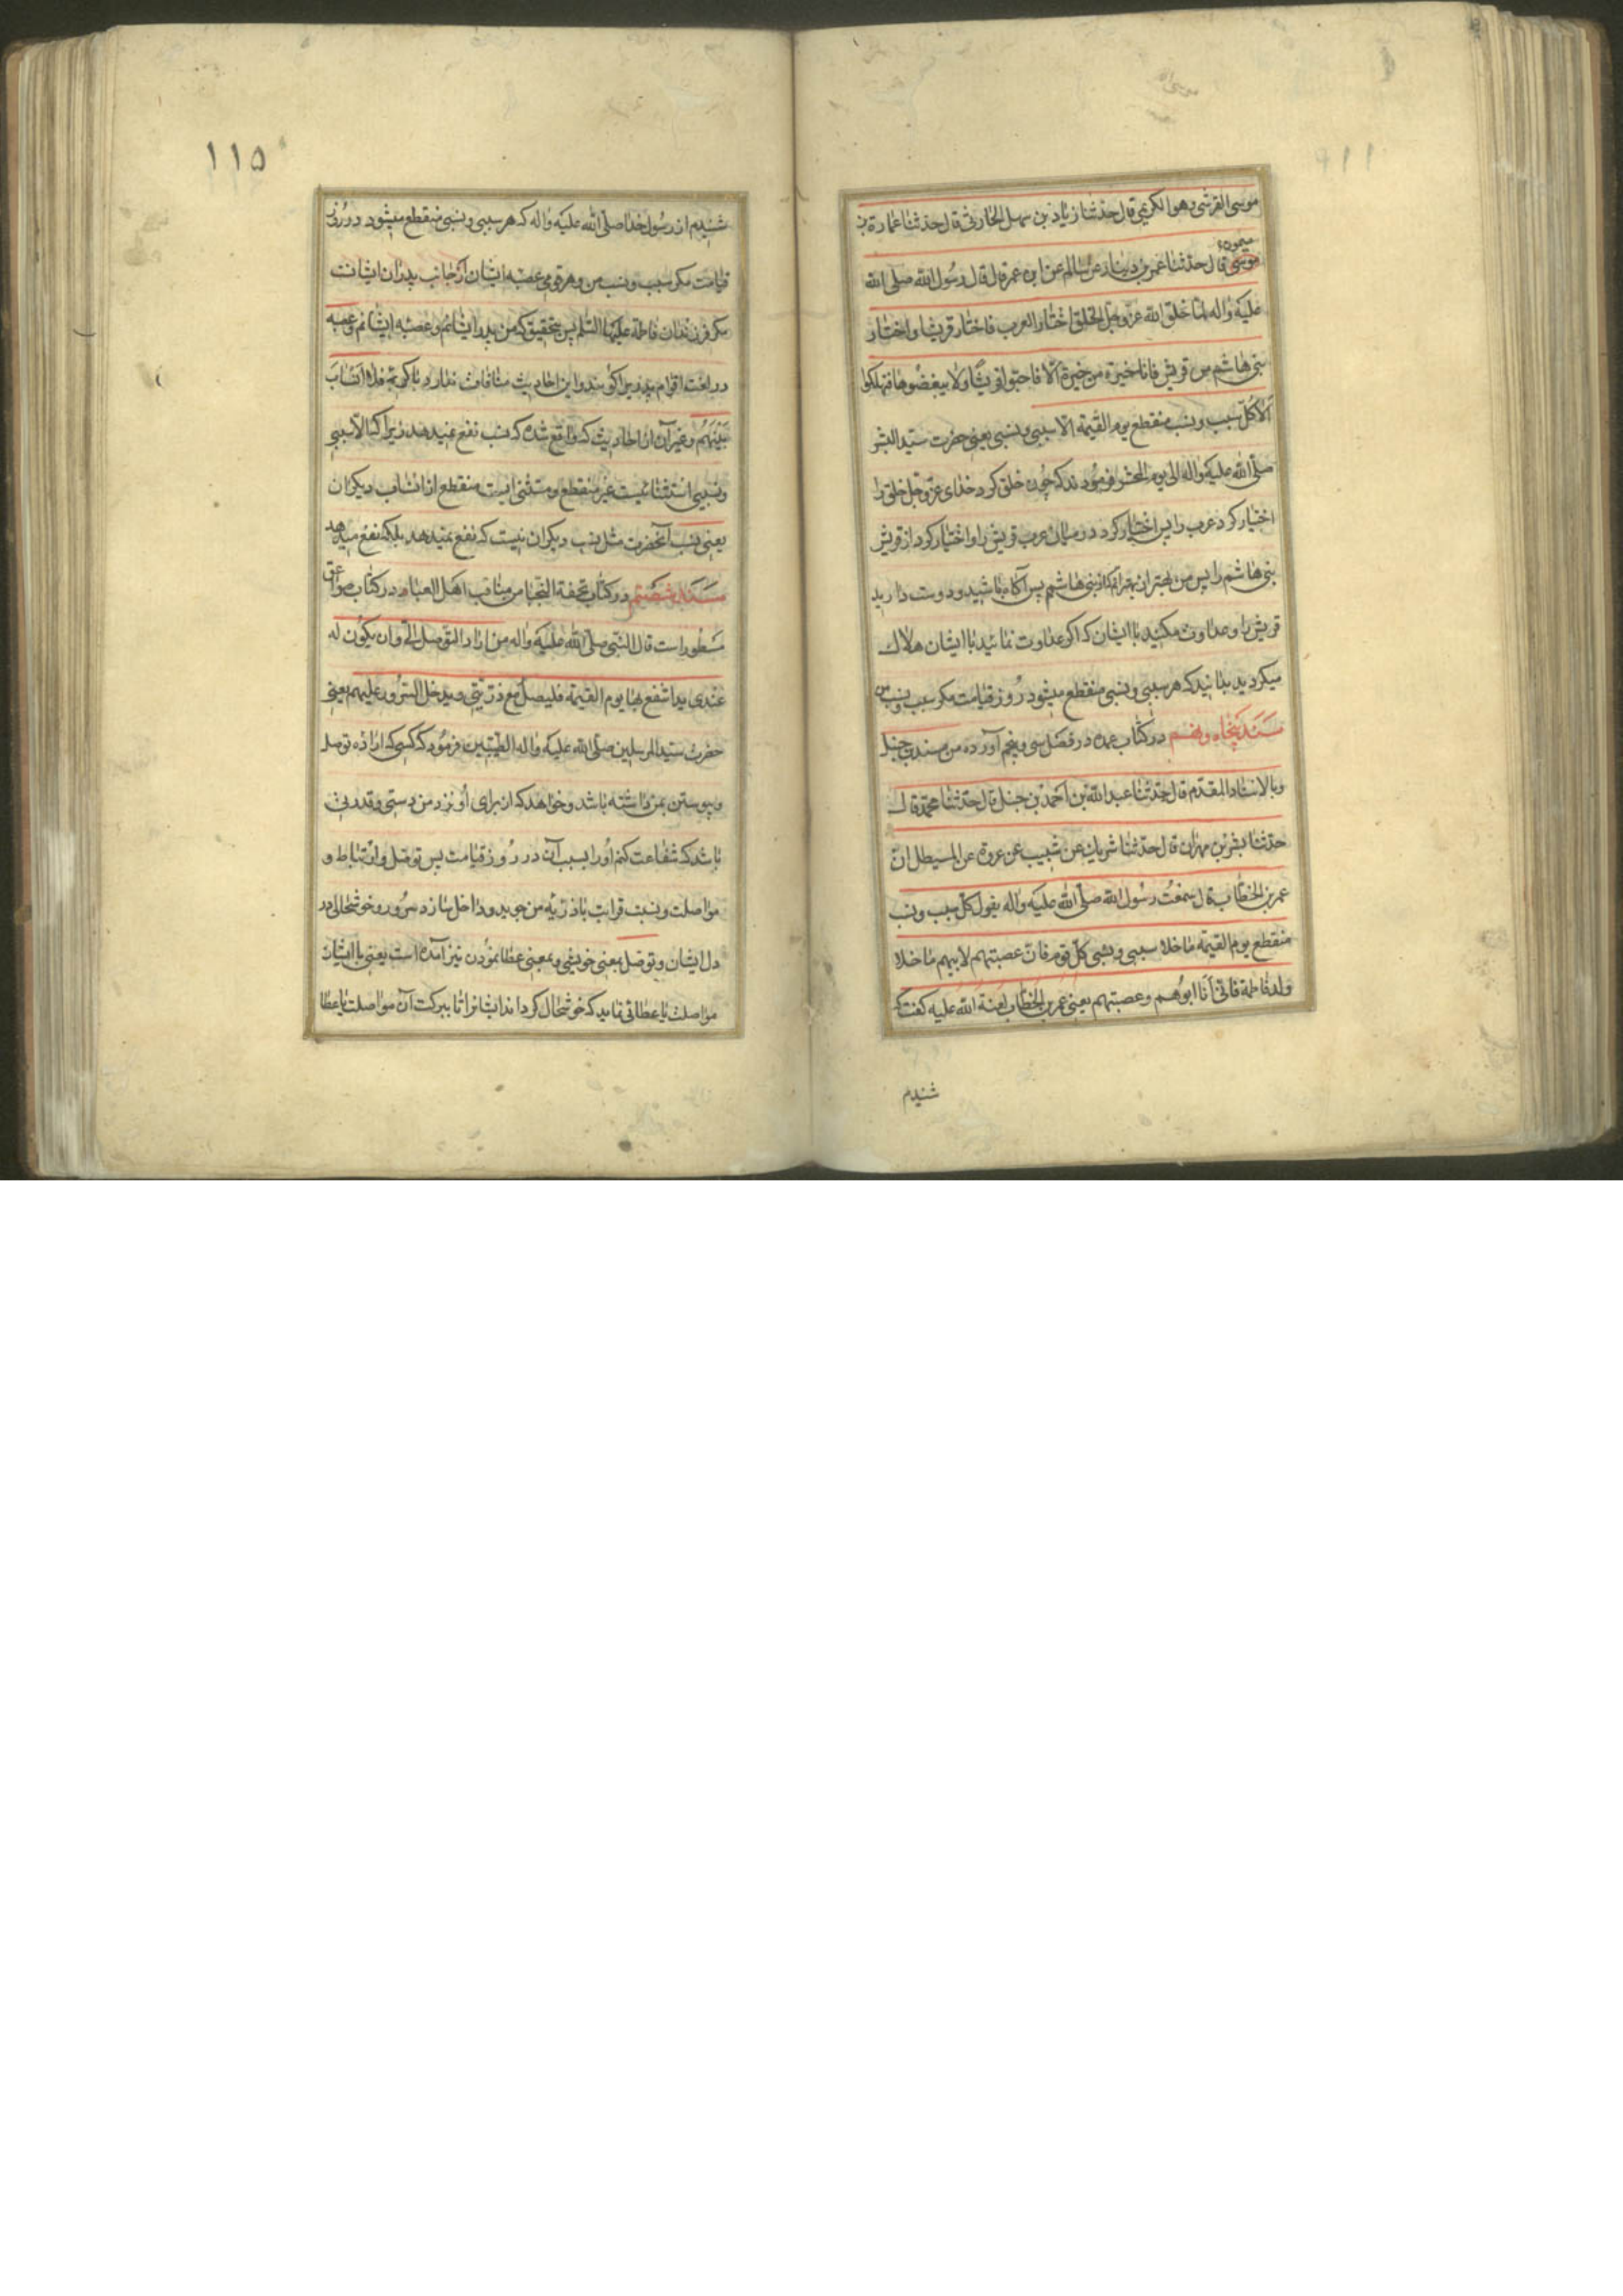 موسی القرشی وهو الکریمی قال حدثنا زیاد بن سهل الحارثی قال حدثنا عمارة بن
میمونه
موسی قال حدثنا عمر بن دینار عن سالم عن ابن عمر قال قال رسول الله صلی الله
علیه واله لما خلق الله عز وجل الخلق اختار العرب فاختار قریشا واختار
بنی هاشم من قریش فانا خیرة من خیرة الا فاحبوا قریشا ولا یبغضوها فتهلکوا
الا کل سبب ونسب منقطع یوم القیمة الا سببی ونسبی یعنی حضرت سید البشر
صلی الله علیه واله الی یوم المحشر فرمودند که چون خلق کرد خدای عز وجل خلق را
اختیار کرد عرب را پس اختیار کرد در میان عرب قریش را و اختیار کرد از قریش
بنی هاشم را پس من بهتر از بهترانم که از بنی هاشمم پس آگاه باشید و دوست دارید
قریش را و عداوت مکنید با ایشان که اکر عداوت نمائید با ایشان هلاک
میکردید بدانید که هر سببی و نسبی منقطع میشود روز قیامت مکر سبب و نسب من
سند پنجاه ونهم در کتاب عمده در فصل سی و پنجم آورده من مسند بن حنبل
وبالاسناد المقدم قال حدثنا عبدالله بن احمد بن حنبل قال حدثنا محمد قال
حدثنا بشر بن مهران قال حدثنا شریک عن شبیب عن عروة عن المسیطل ان
عمر بن الخطاب قال سمعت رسول الله صلی الله علیه واله یقول کل سبب ونسب
منقطع یوم القیمة ماخلا سببی ونسبی کل قوم فان عصبتهم لابیهم ماخلا
ولد فاطمة فانی انا ابوهم وعصبتهم یعنی عمر بن الخطاب لعنة الله علیه کفت که
شنیدم
۱۱۵
شنیدم از رسول خدا صلی الله علیه واله که هر سببی و نسبی منقطع میشود در روز
قیامت مکر سبب و نسب من و هر قومی عصبه ایشان از جانب پدران ایشانست
مکر فرزندان فاطمة علیها السلم پس بتحقیق که من پدر ایشانم و عصبه ایشانم وعصبه
در لغت اقوام پدری را کویند و این احادیث منافات ندارد با کریمه فلا انساب
بینهم و غیر آن از احادیث که واقع شده که نسب نفع نمیدهد زیرا که الا سببی
ونسبی استثنائیست غیر منقطع و مستثنی ایست منقطع از انساب دیکران
یعنی نسب آنحضرت مثل نسب دیکران نیست که نفع نمیدهد بلکه نفع میدهد
سند شصتم در کتاب تحفة النجبا من مناقب اهل العبا و در کتاب صواعق
مسطور است قال النبی صلی الله علیه واله من اراد التوصل الی وان یکون له
عندی ید اشفع بها یوم القیمة فلیصل مع ذریتی ویدخل السرور علیهم یعنی
حضرت سید المرسلین صلی الله علیه واله الطیبین فرمود که کسی که اراده توصل
و پیوستن بمن داشته باشد و خواهد که از برای او نزد من دستی و قدرتی
باشد که شفاعت کنم او را بسبب آن در روز قیامت پس توصل و ارتباط و
مواصلت و نسبت قرابت با ذریه من جوید و داخل سازد سرور و خوشحالی در
دل ایشان و توصل بمعنی خویشی و بمعنی عطا نمودن نیز آمده است یعنی با ایشان
مواصلت یا عطائی نماید که خوشحال کرداند ایشانرا تا ببرکت آن مواصلت یا عطا